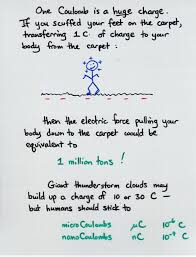 One Coulomb is a huge charge.
If you scuffed your feet on the carpet,
transferring 1 C of charge to your
body from the carpet:
then the electric force pulling your
body down to the carpet would be
equivalent to
1 million tons!
Giant thunderstorm clouds may
build up a charge of 10 or 30 C —
but humans should stick to
microCoulombs μC 10⁻⁶ C
nanoCoulombs nC 10⁻⁹ C